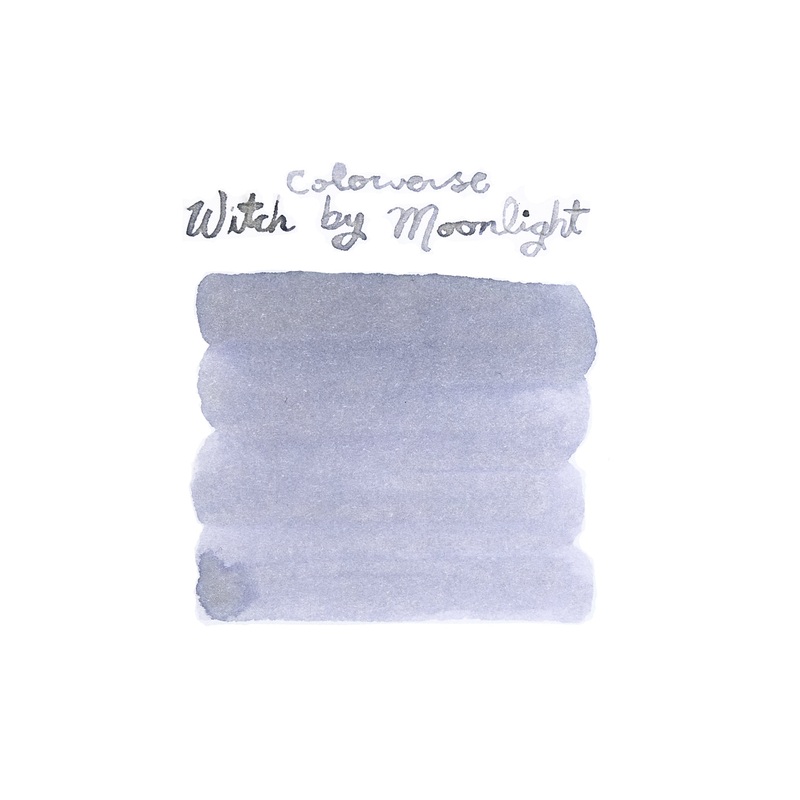 Colorverse
Witch by Moonlight